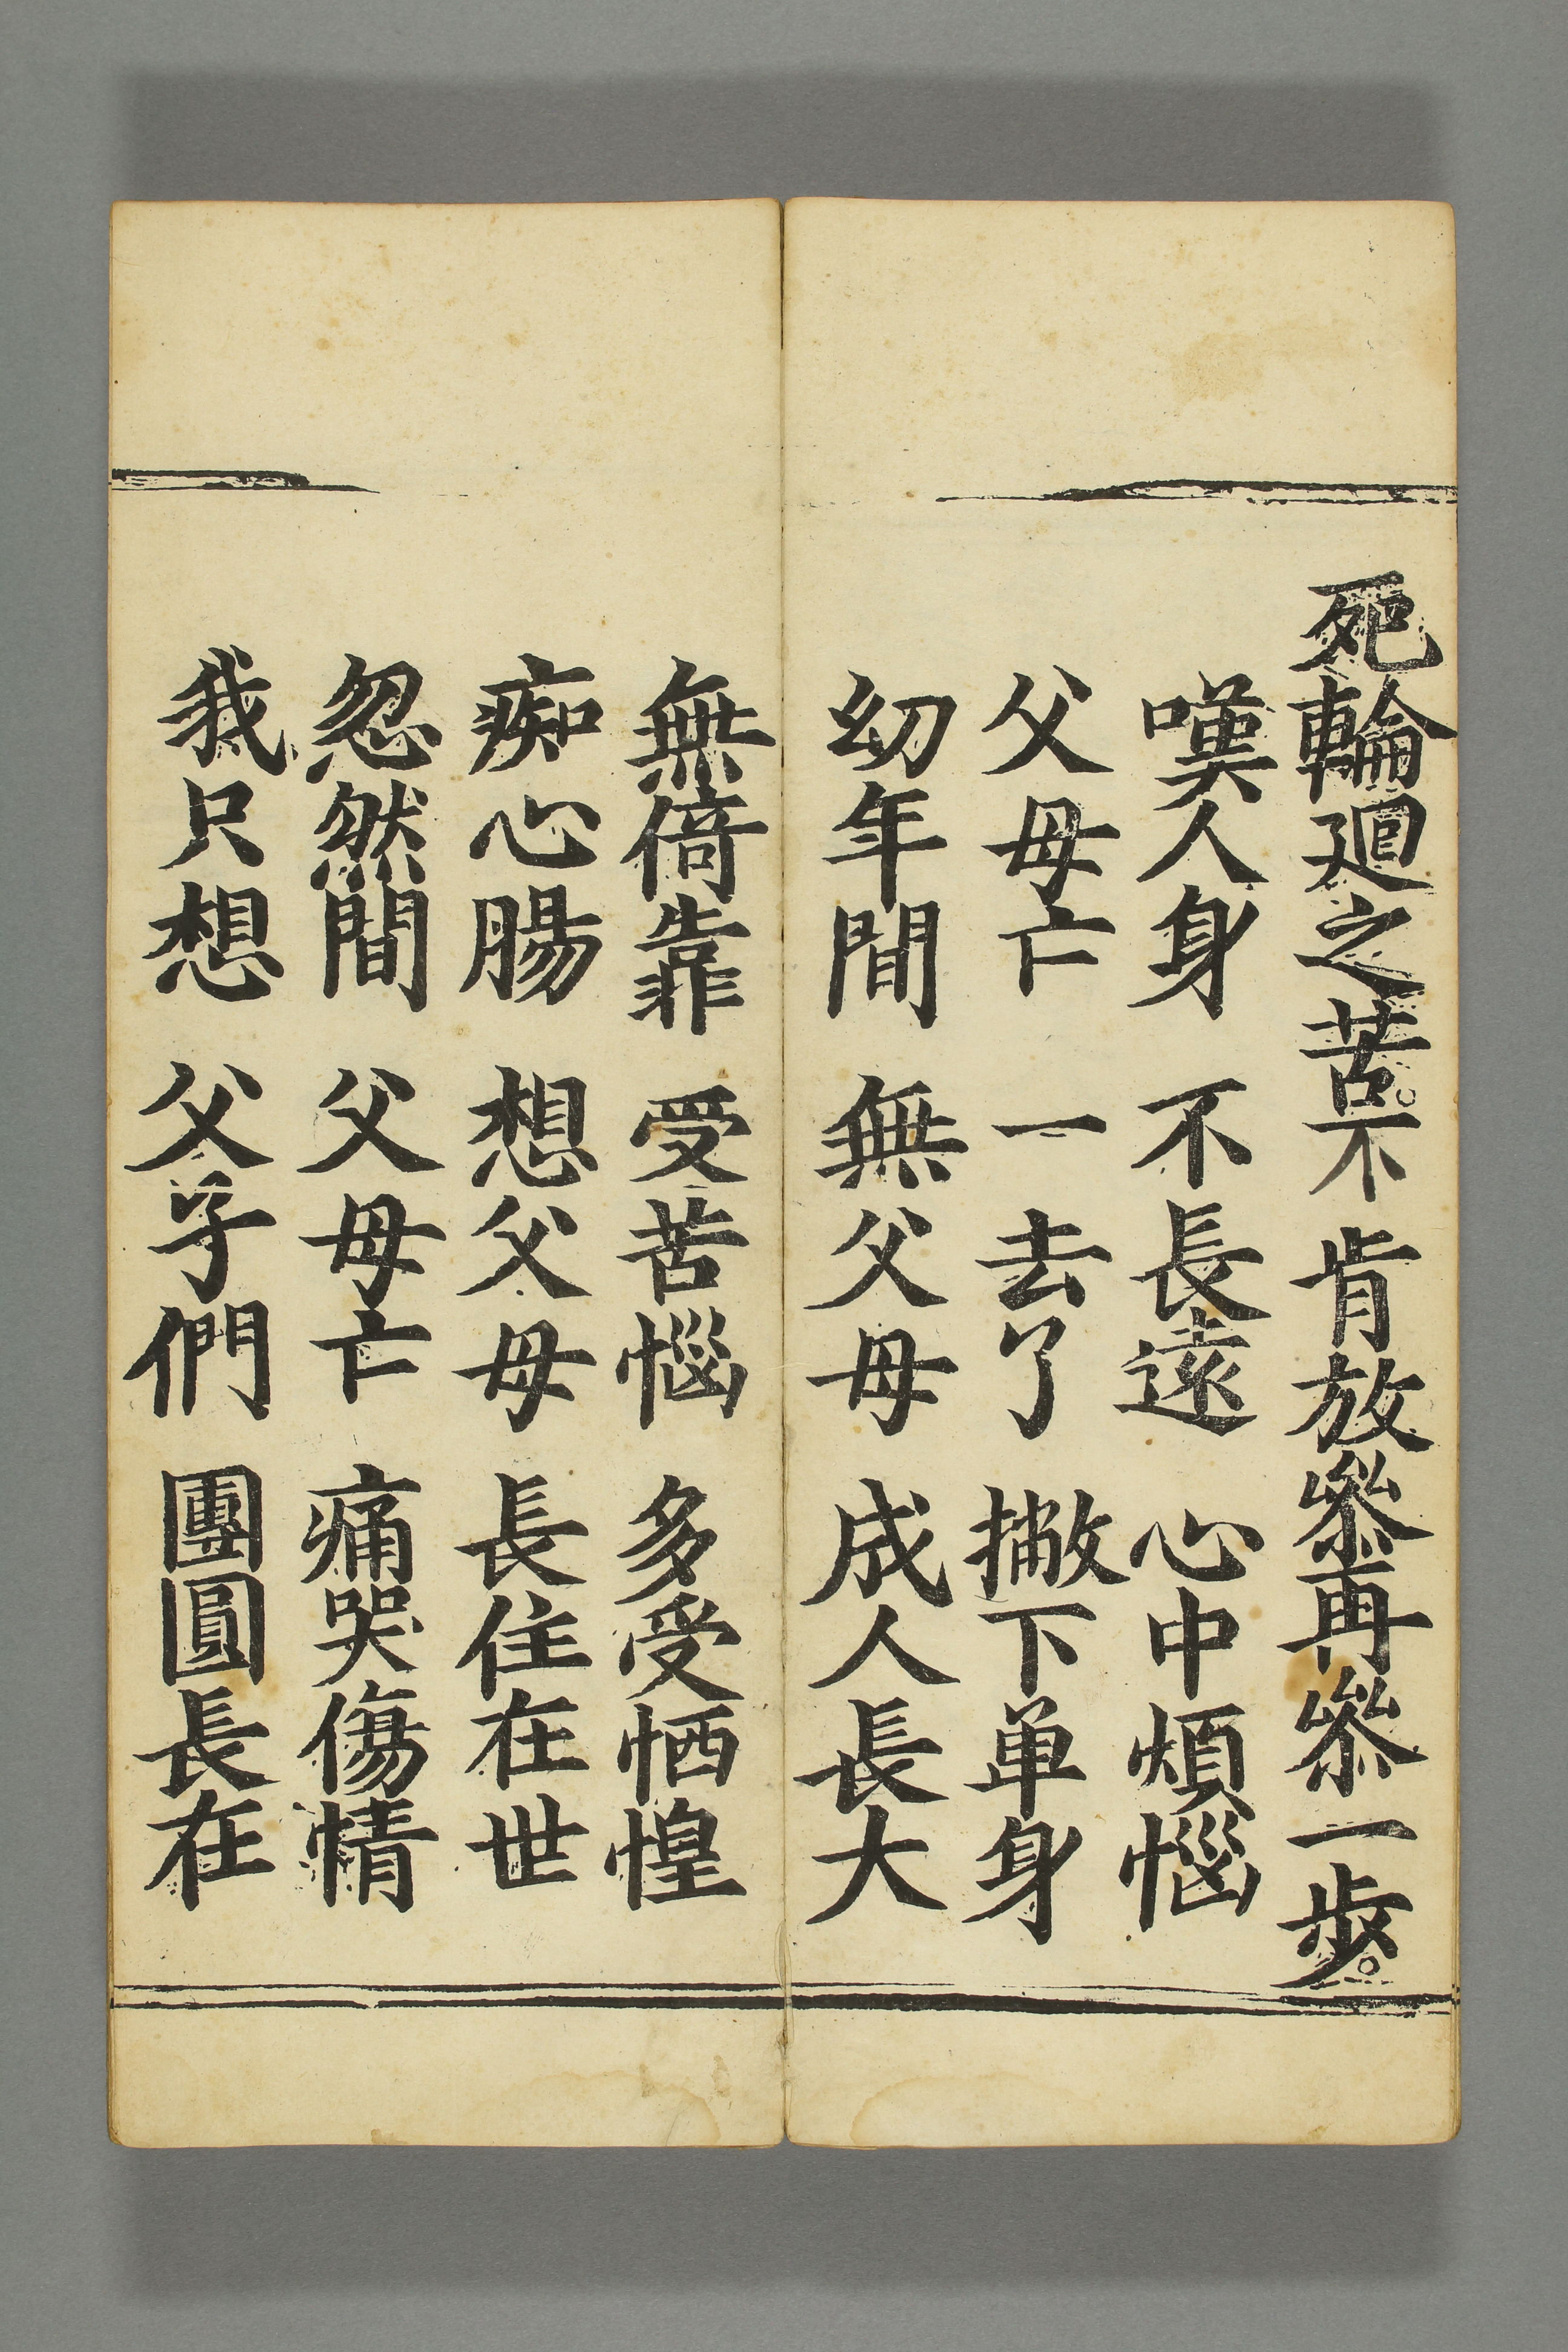 死輪廻之苦。不肯放參再參一步。
嘆人身 不長遠 心中煩惱
父母亡 一去了 撇下单身
幼年間 無父母 成人長大
無倚靠 受苦惱 多受恓惶
痴心腸 想父母 長住在世
忽然間 父母亡 痛哭傷情
我只想 父子們 團圓長在